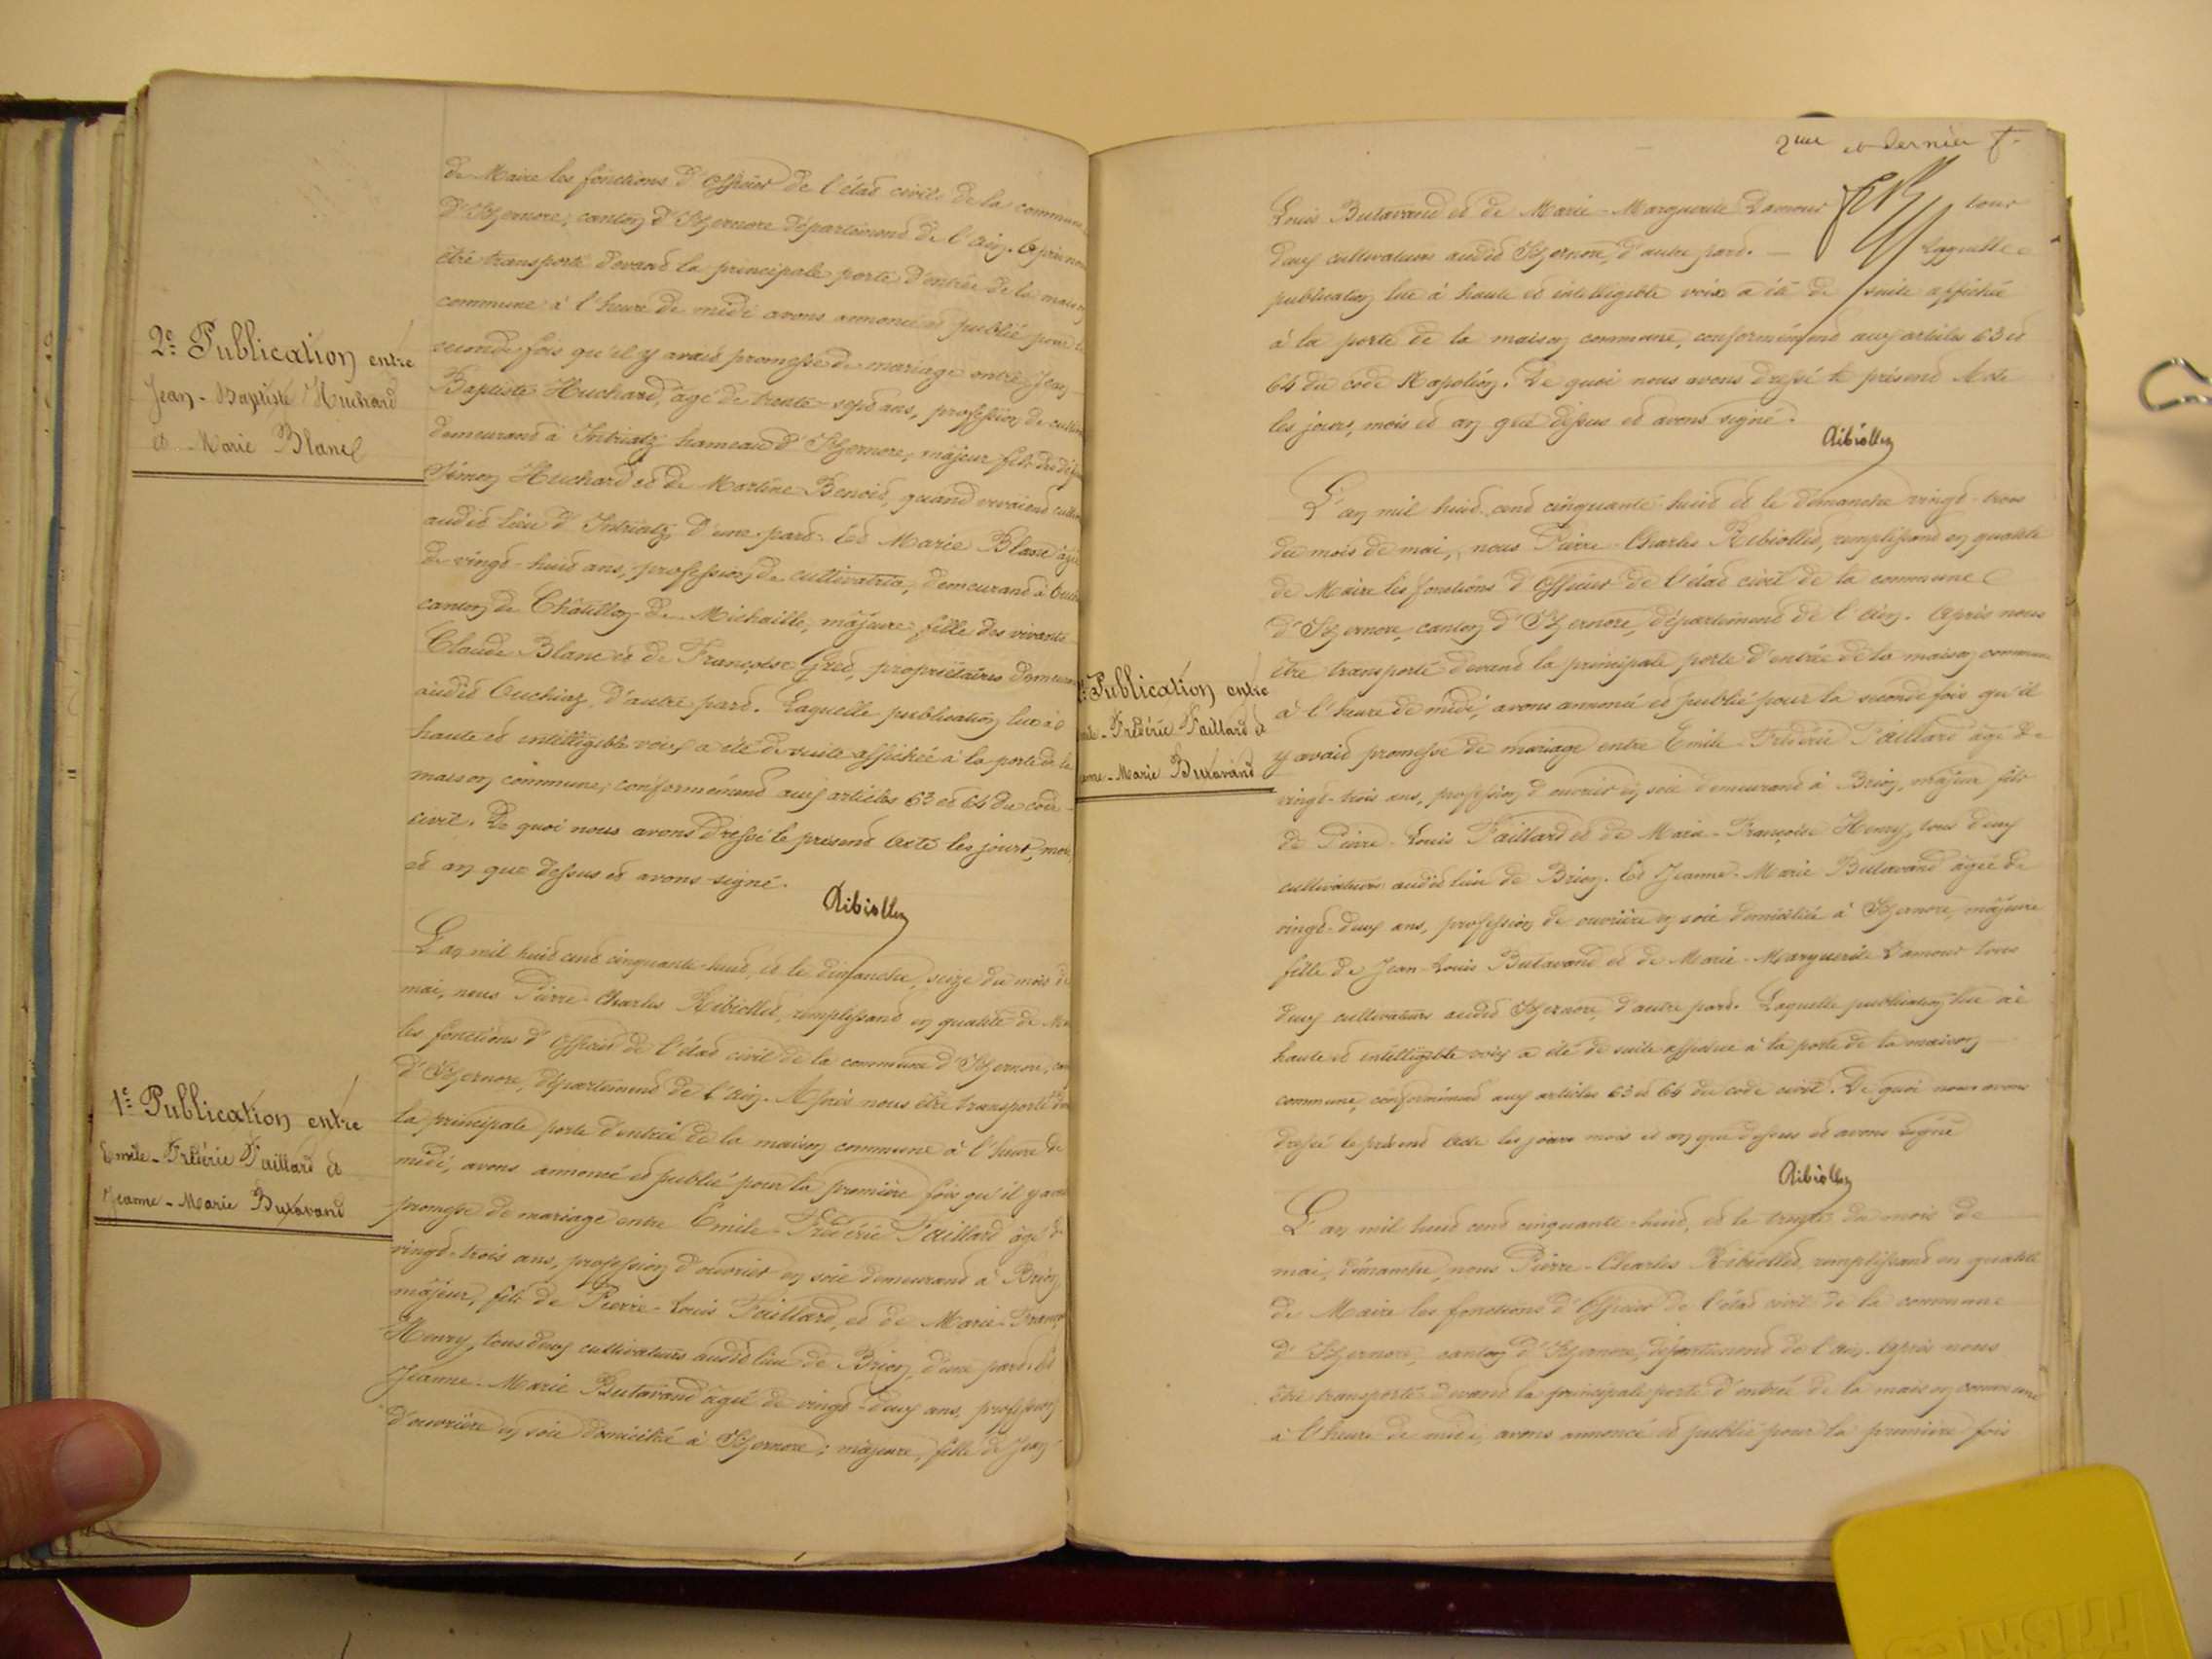 2e Publication entre
Jean-Baptiste Huchard
et Marie Blanc
de Maire les fonctions d'Officier de l'état civil de la commune
d'Izernore, canton d'Izernore département de l'Ain. Après nous
être transporté devant la principale porte d'entrée de la maison
commune à l'heure de midi avons annoncé et publié pour la
seconde fois qu'il y avait promesse de mariage entre Jean
Baptiste Huchard, âgé de trente-sept ans, profession de
demeurant à Intriatz hameau d'Izernore, majeur fils des
Simon Huchard et de Martine Benoit, quand vivaient
audit lieu d'Intriatz, d'une part. Et Marie Blanc âgée
de vingt-huit ans, profession de cultivatrice, demeurant à
canton de Châtillon-de-Michaille, majeure fille des vivants
Claude Blanc et de Françoise Gred, propriétaires
audit Ouchiaz, d'autre part. Laquelle publication lue à
haute et intelligible voix a été de suite affichée à la porte de la
maison commune, conformément aux articles 63 et 64 du code
civil. De quoi nous avons dressé le présent Acte les jours, mois
et an que dessus et avons signé.
Ribiollet
1e Publication entre
Emile-Frédéric Paillard et
Jeanne-Marie Butavand
L'an mil huit cent cinquante-huit, et le dimanche, seize du mois de
mai, nous Pierre-Charles Ribiollet, remplissant en qualité de
les fonctions d'Officier de l'état civil de la commune d'Izernore,
d'Izernore, département de l'Ain. Après nous être transporté
la principale porte d'entrée de la maison commune à l'heure de
midi, avons annoncé et publié pour la première fois qu'il y avait
promesse de mariage entre Emile-Frédéric Paillard âgé de
vingt-trois ans, profession d'ouvrier en soie demeurant à Brion
majeur, fils de Pierre-Louis Paillard, et de Marie
Henry, tous deux cultivateurs audit lieu de Brion, d'une part. Et
Jeanne-Marie Butavand âgée de vingt-deux ans, profession
d'ouvrière en soie domiciliée à Izernore; majeure, fille de Jean
2me et dernier f.
Louis Butavand et de Marie-Marguerite Lamour tous
deux cultivateurs audit Izernore, d'autre part. Laquelle
publication lue à haute et intelligible voix a été de suite affichée
à la porte de la maison commune, conformément aux articles 63 et
64 du code Napoléon. De quoi nous avons dressé le présent Acte
les jours, mois et an que dessus et avons signé.
Ribiollet
Publication entre
Frédéric Paillard et
Marie Butavand
L'an mil huit cent cinquante-huit et le dimanche vingt-trois
du mois de mai, nous Pierre-Charles Ribiollet, remplissant en qualité
de Maire les fonctions d'Officier de l'état civil de la commune
d'Izernore, canton d'Izernore, département de l'Ain. Après nous
être transporté devant la principale porte d'entrée de la maison commune
à l'heure de midi, avons annoncé et publié pour la seconde fois qu'il
y avait promesse de mariage entre Emile-Frédéric Paillard âgé de
vingt-trois ans, profession d'ouvrier en soie demeurant à Brion, majeur fils
de Pierre-Louis Paillard et de Marie-Françoise Henry, tous deux
cultivateurs audit lieu de Brion. Et Jeanne-Marie Butavand âgée de
vingt-deux ans, profession de ouvrière en soie domiciliée à Izernore, majeure
fille de Jean-Louis Butavand et de Marie-Marguerite Lamour tous
deux cultivateurs audit Izernore, d'autre part. Laquelle publication lue à
haute et intelligible voix a été de suite affichée à la porte de la maison
commune, conformément aux articles 63 et 64 du code civil. De quoi nous avons
dressé le présent Acte les jours mois et an que dessus et avons signé
Ribiollet
L'an mil huit cent cinquante-huit, et le trente du mois de
mai, dimanche, nous Pierre-Charles Ribiollet, remplissant en qualité
de Maire les fonctions d'Officier de l'état civil de la commune
d'Izernore, canton d'Izernore, département de l'Ain. Après nous
être transporté devant la principale porte d'entrée de la maison commune
à l'heure de midi, avons annoncé et publié pour la première fois